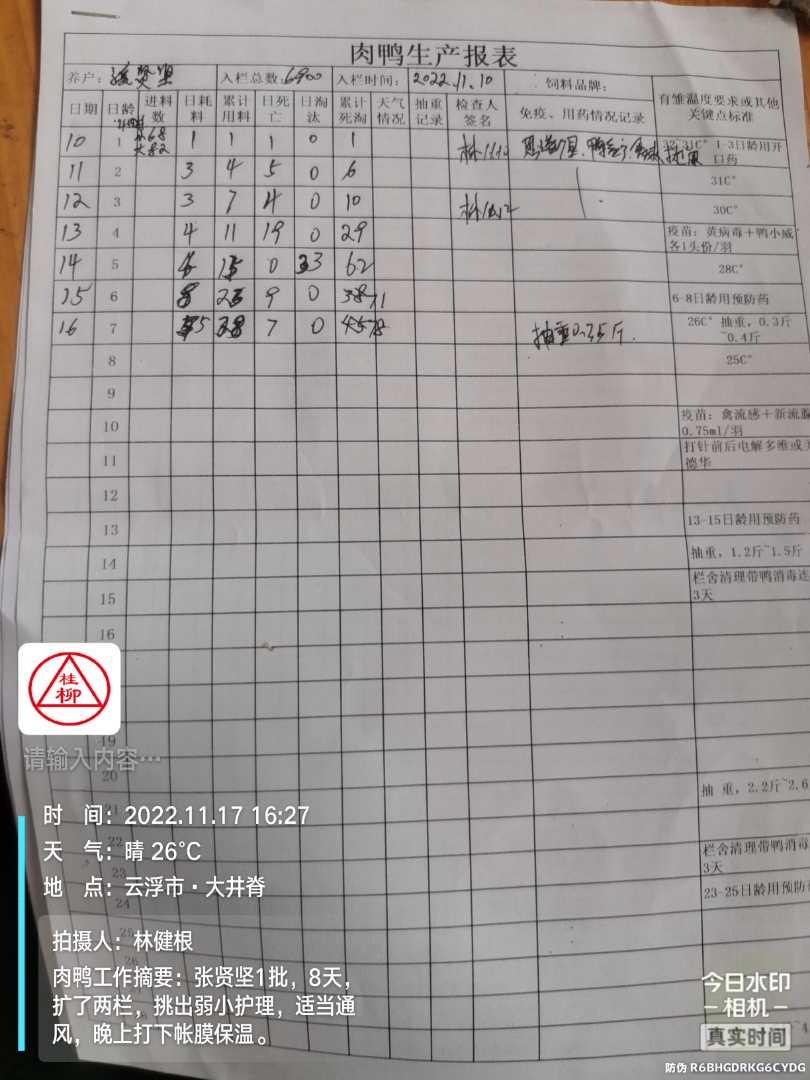 肉鸭生产报表
养户： 贤坚 入栏总数：6900 入栏时间：2022.11.10 饲料品牌：
日期 日龄 进料数 日耗料 累计用料 日死亡 日淘汰 累计死淘 天气情况 抽重记录 检查人签名 免疫、用药情况记录 育雏温度要求或其他关键点标准
10 1 大82 1 1 1 0 1 31C° 1-3日龄用开口药
11 2 3 4 5 0 6 31C°
12 3 3 7 4 0 10 30C°
13 4 4 11 19 0 29 疫苗：黄病毒＋鸭小威各1头份/羽
14 5 15 0 33 62 28C°
15 6 8 23 9 0 71 6-8日龄用预防药
16 7 15 38 7 0 78 抽重0.35斤. 26C° 抽重，0.3斤~0.4斤
8 25C°
9
10 疫苗：禽流感＋新流腺 0.75ml/羽
11 打针前后电解多维或 德华
12
13 13-15日龄用预防药
14 抽重，1.2斤~1.5斤
15 栏舍清理带鸭消毒连 3天
16
桂柳
19
请输入内容…
20 抽 重，2.2斤~2.6
21
时 间：2022.11.17 16:27
22 栏舍清理带鸭消毒 3天
天 气：晴 26°C
23
地 点：云浮市·大井脊
24 23-25日龄用预防
25
拍摄人：林健根
26
肉鸭工作摘要：张贤坚1批，8天，
扩了两栏，挑出弱小护理，适当通
风，晚上打下帐膜保温。
今日水印
相机
真实时间
防伪 R6BHGDRKG6CYDG